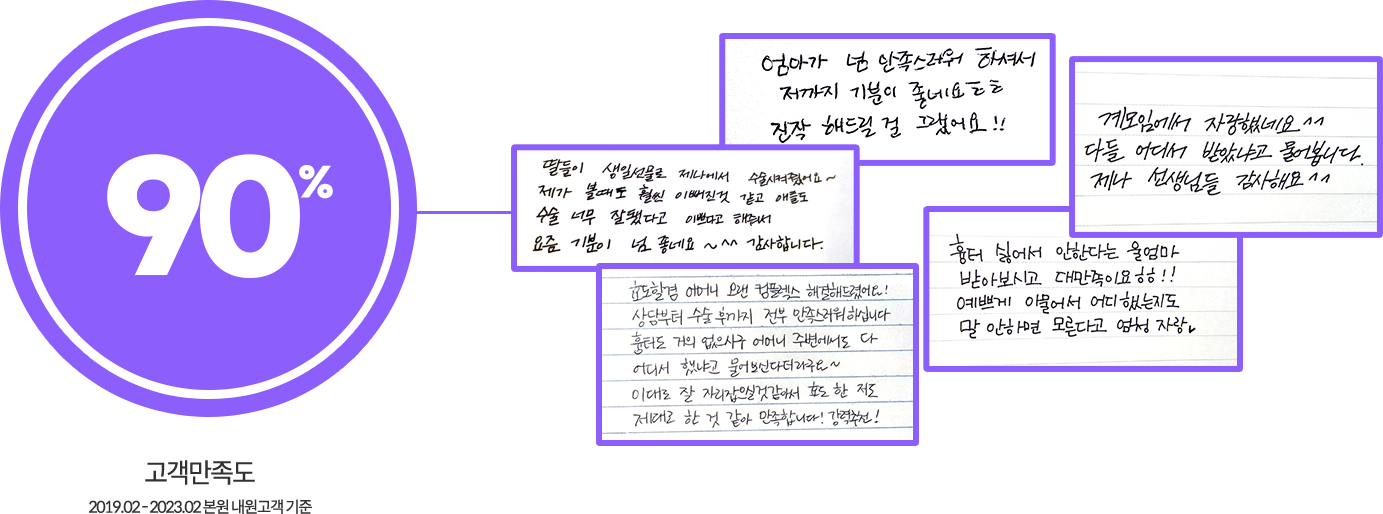 90%
고객만족도
2019.02 - 2023.02 본원 내원고객 기준
엄마가 넘 만족스러워 하셔서
저까지 기분이 좋네요ㅎㅎ
진작 해드릴 걸 그랬어요!!
계모임에서 자랑했네요^^
다들 어디서 받았냐고 물어봅니다.
제나 선생님들 감사해요^^
딸들이 생일선물로 제나에서 수술시켜줬어요~
제가 볼때도 훨씬 이뻐진것 같고 애들도
수술 너무 잘됐다고 이쁘다고 해줘서
요즘 기분이 넘 좋네요~^^ 감사합니다.
흉터 싫어서 안한다는 울엄마
받아보시고 대만족이요ㅎㅎ!!
예쁘게 아물어서 어디 했는지도
말 안하면 모른다고 엄청 자랑
효도할겸 어머니 오랜 컴플렉스 해결해드렸어요!
상담부터 수술 후까지 전부 만족스러워하십니다
흉터도 거의 없으시구 어머니 주변에서도 다
어디서 했냐고 물어보신다더라구요~
이대로 잘 자리잡으실것같아서 효도 한 저도
제대로 한 것 같아 만족합니다! 강력추천!